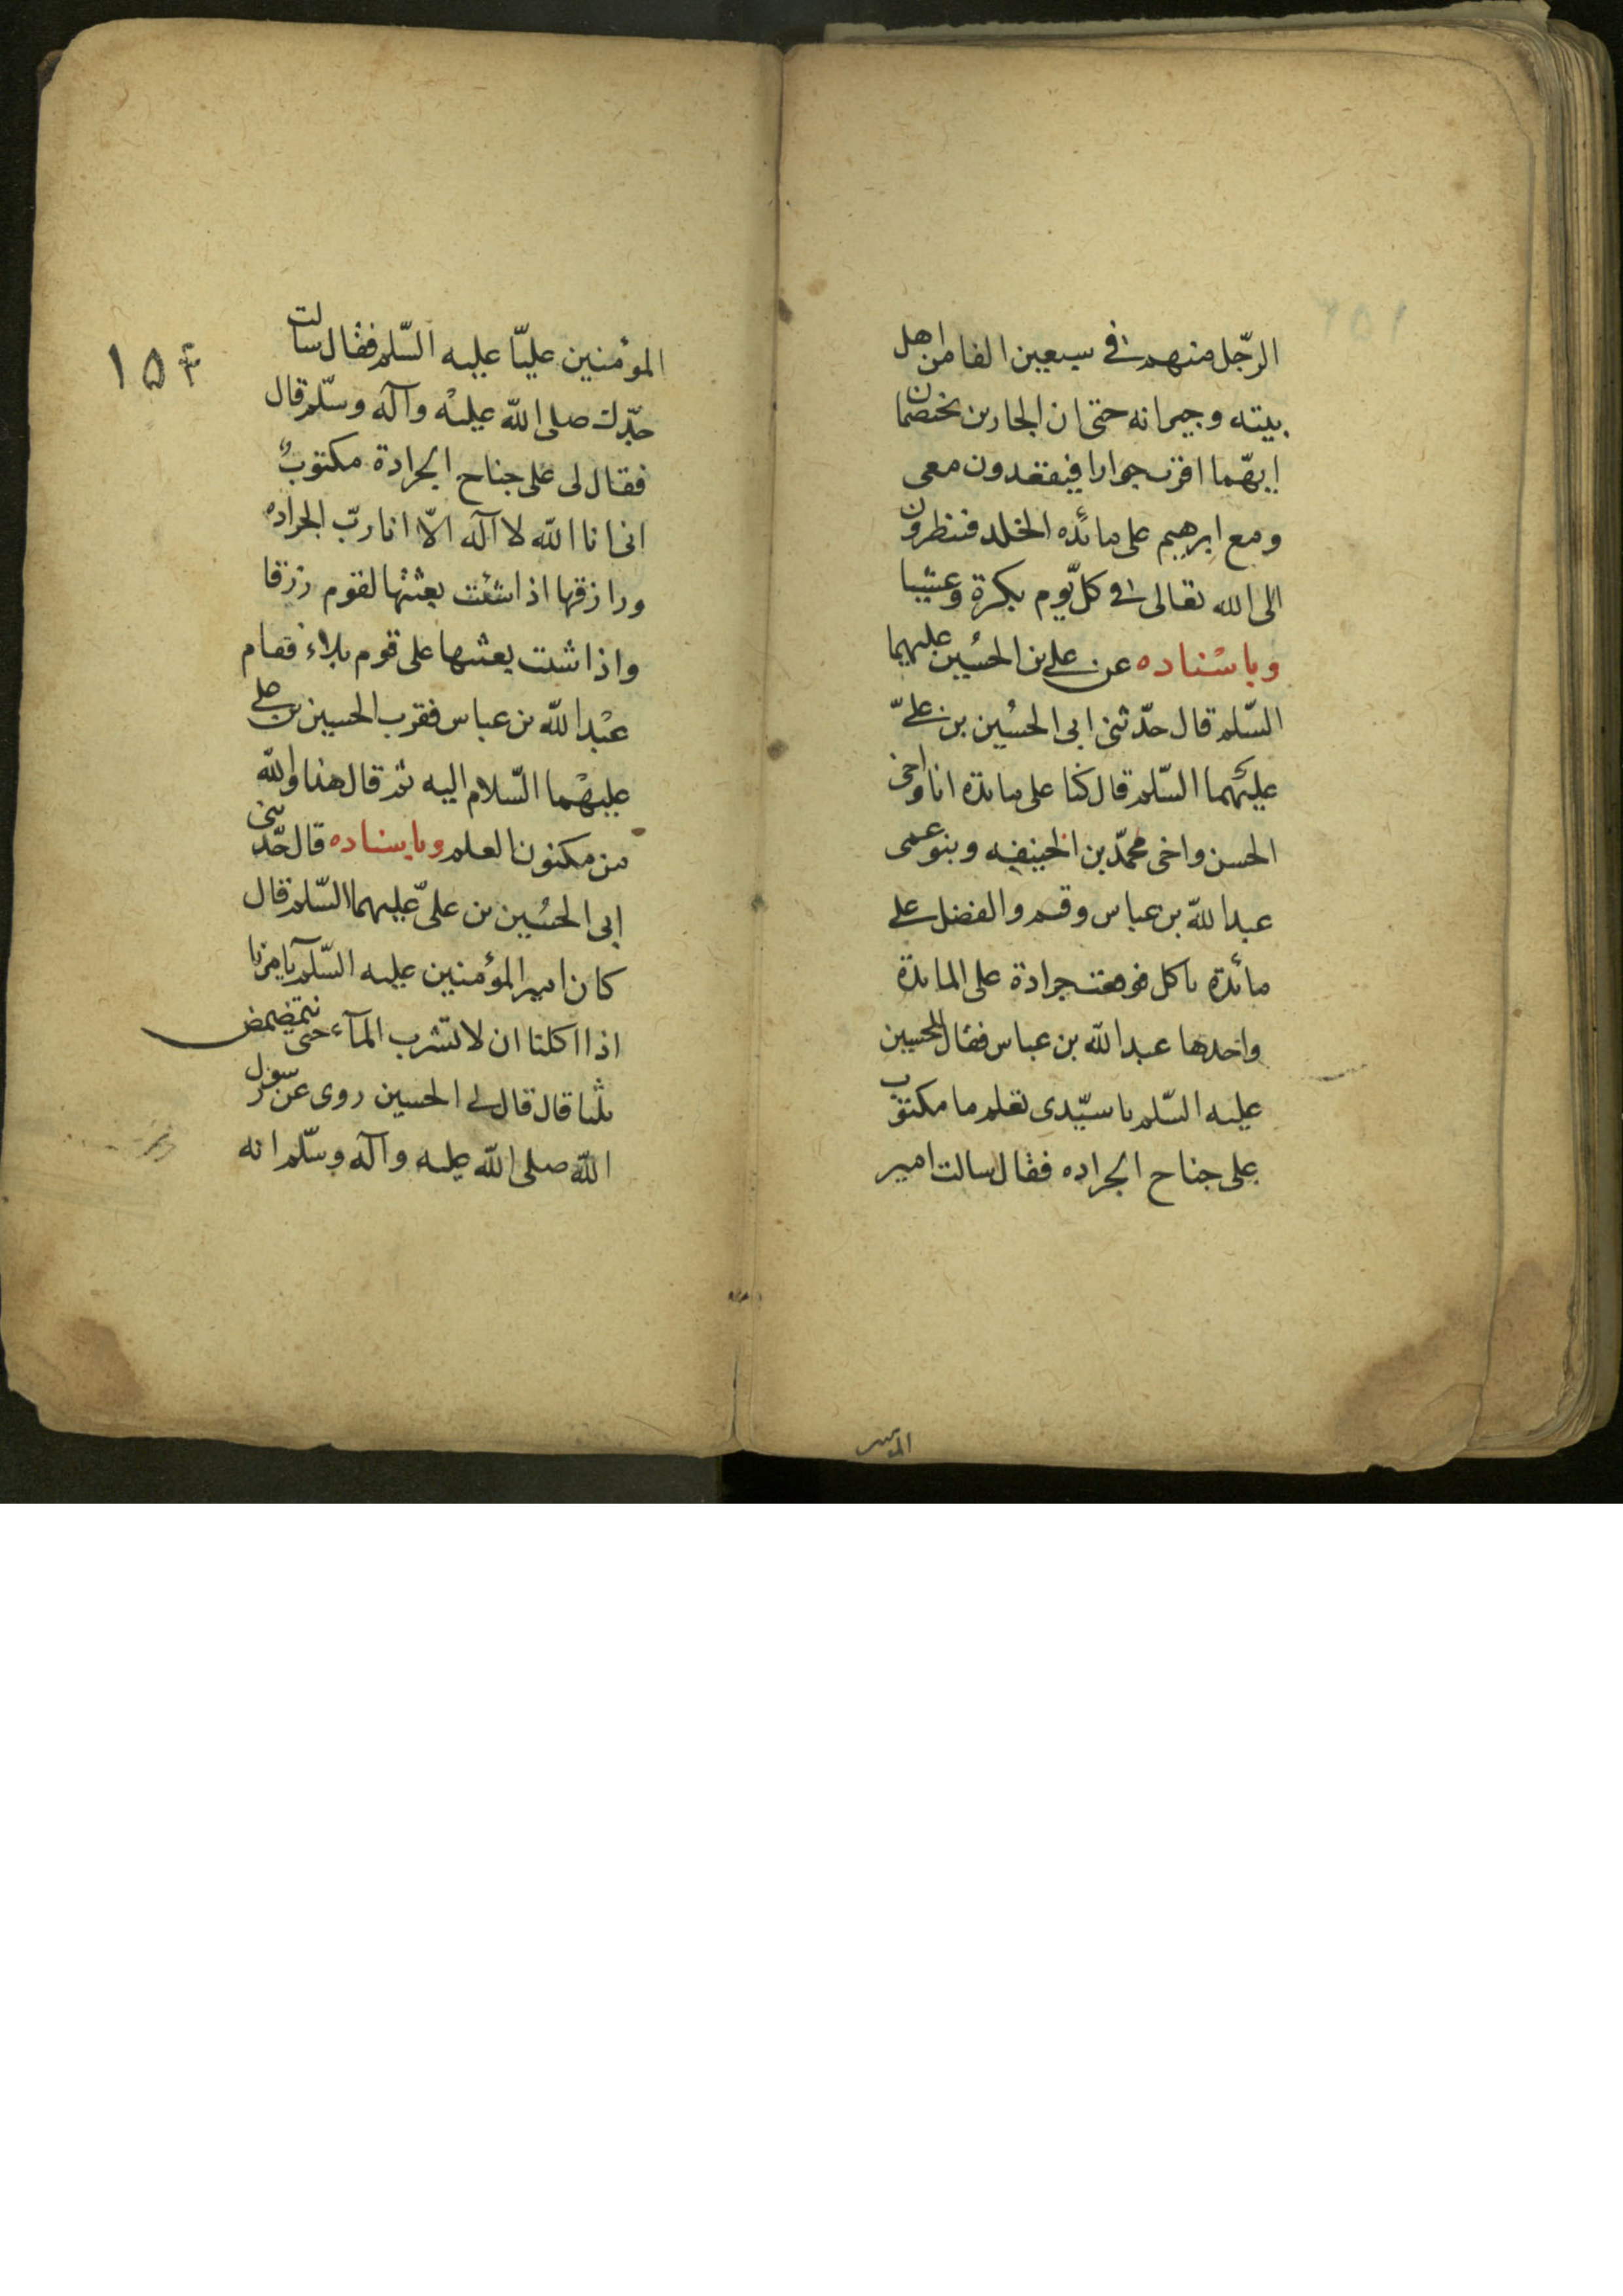 الرّجل منهم فى سبعين الفا من اهل
بيته وجيرانه حتى ان الجارين يختصمان
ايهّما اقرب جوارا فيقعدون معى
ومع ابرهيم على مائده الخلد فينظرون
الى الله تعالى فى كلّ يوم بكرة وعشيا
وباسناده عن على بن الحسُين عليهما
السّلم قال حدّثنى ابى الحسُين بن علىّ
عليهما السّلم قال كنا على مائدة انا واخى
الحسن واخى محمّد بن الحنيفه وبنو عمى
عبد الله بن عباس وقثم والفضل على
مائدة ناكل فوقعت جرادة على المائدة
واخدها عبد الله بن عباس فقال للحسين
عليه السّلم يا سيّدى تعلم ما مكتوب
على جناح الجراده فقال سالت امير
المير
١٥٤
المؤمنين عليّا عليه السّلم فقال سالت
جدّك صلى الله عليه وآله وسلّم قال
فقال لى على جناح الجرادة مكتوبٌ
انى انا الله لا اله الاّ انا ربّ الجراده
ورازقها اذا شئت بعثتها لقوم رزقا
واذا شئت بعثتها على قوم بلاء فقام
عبْد الله بن عباس فقرب الحسين بن على
عليهْما السّلام اليه ثم قال هذا والله
من مكنون العلم وباسناده قال حدّثنى
ابى الحسُين بن علىّ عليهما السّلم قال
كان امير المؤمنين عليه السّلم يامرنا
اذا اكلنا ان لا نشرب المآء حتى نتمضمض
ثلثا قال قال لى الحسين روى عن رسول
الله صلى الله عليه وآله وسلّم انه